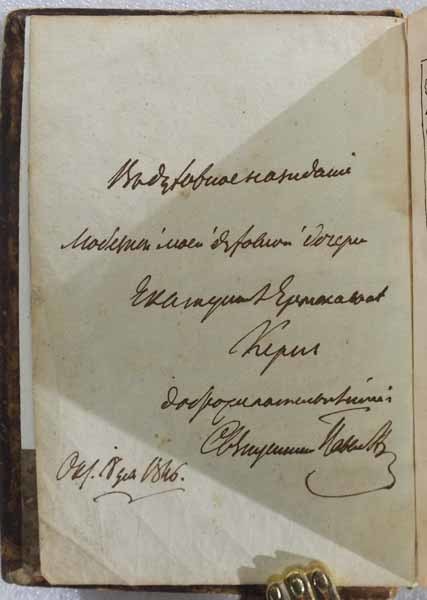 Въ духовное назиданіе
любезной моей духовной дочери
Екатеринѣ Ермолаевнѣ
Кернъ
доброжелательнѣйшій
Священникъ Павелъ
Окт. дня 1846.